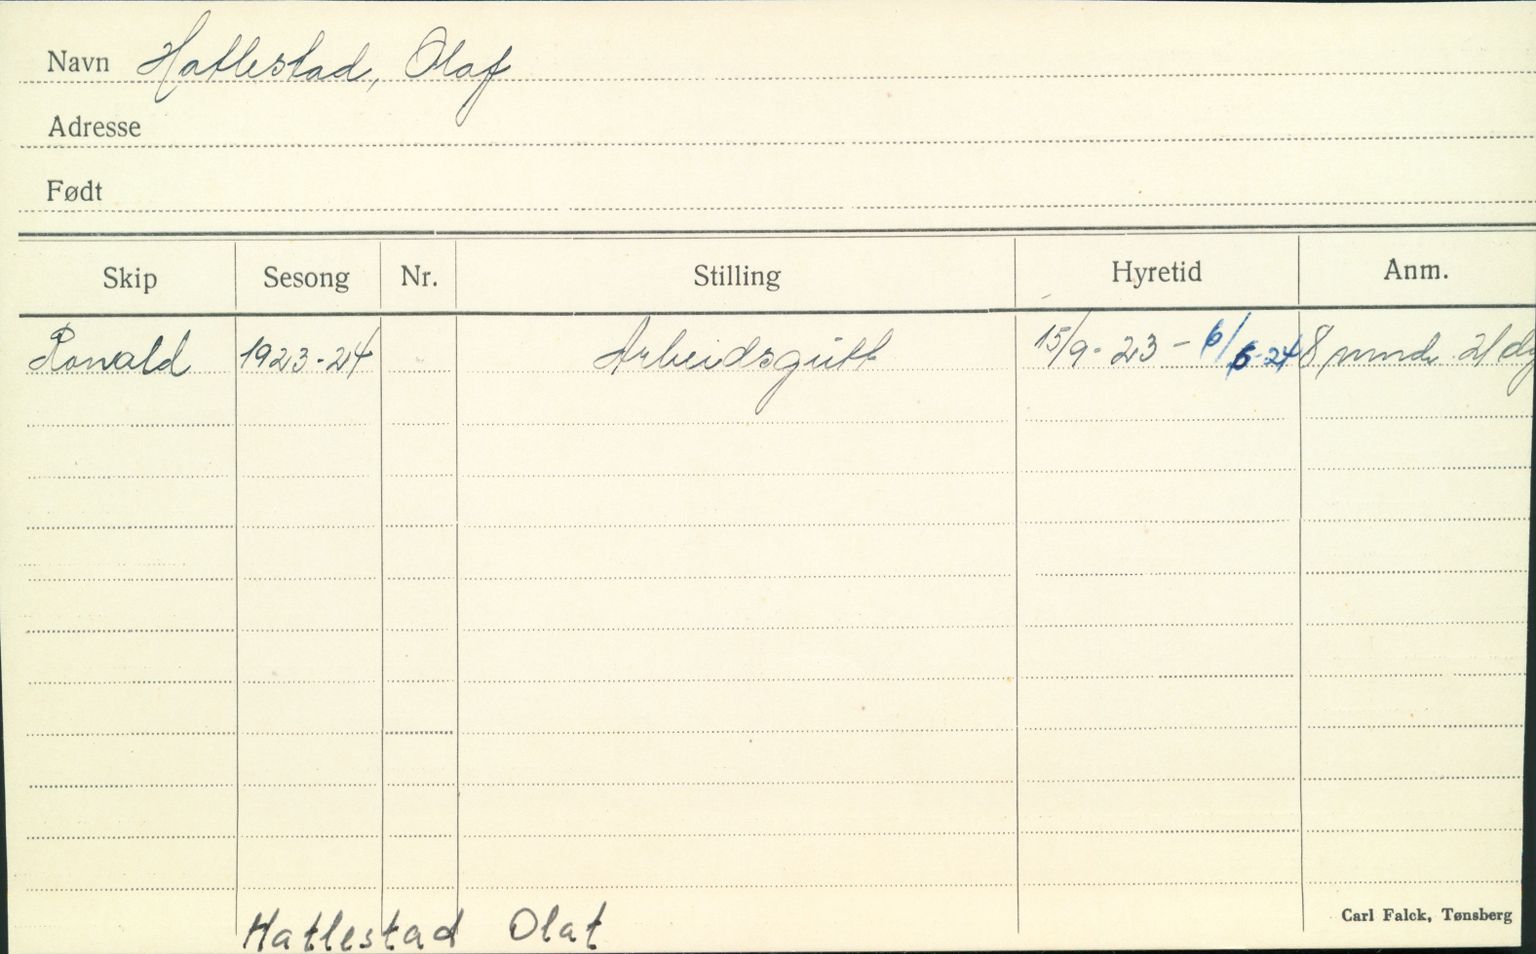 Navn Hatlestad, Olaf
Adresse
Født
Skip Sesong Nr. Stilling Hyretid Anm.
Ronald 1923-24 Arbeidsgutt 15/9-23 - 6/6-24 8 mndr. 21 dg
Hatlestad Olat
Carl Falck, Tønsberg